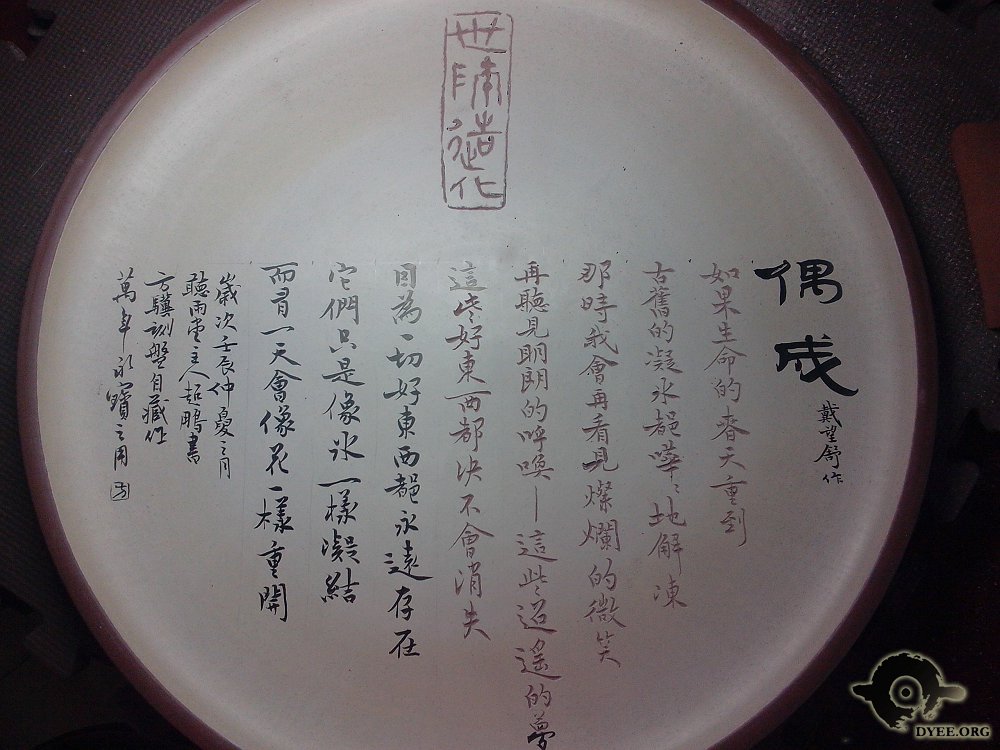 世隣造化
偶成
戴望舒作
如果生命的春天重到
古舊的凝冰都嘩嘩地解凍
那時我會再看見燦爛的微笑
再聽見明朗的呼喚—這些迢遙的夢
這些好東西都決不會消失
因為一切好東西都永遠存在
它們只是像冰一樣凝結
而有一天會像花一樣重開
歲次壬辰仲夏之月
聽雨堂主人超鵬書
方驥刻盤自藏作
萬年永寶之用
DYEE.ORG